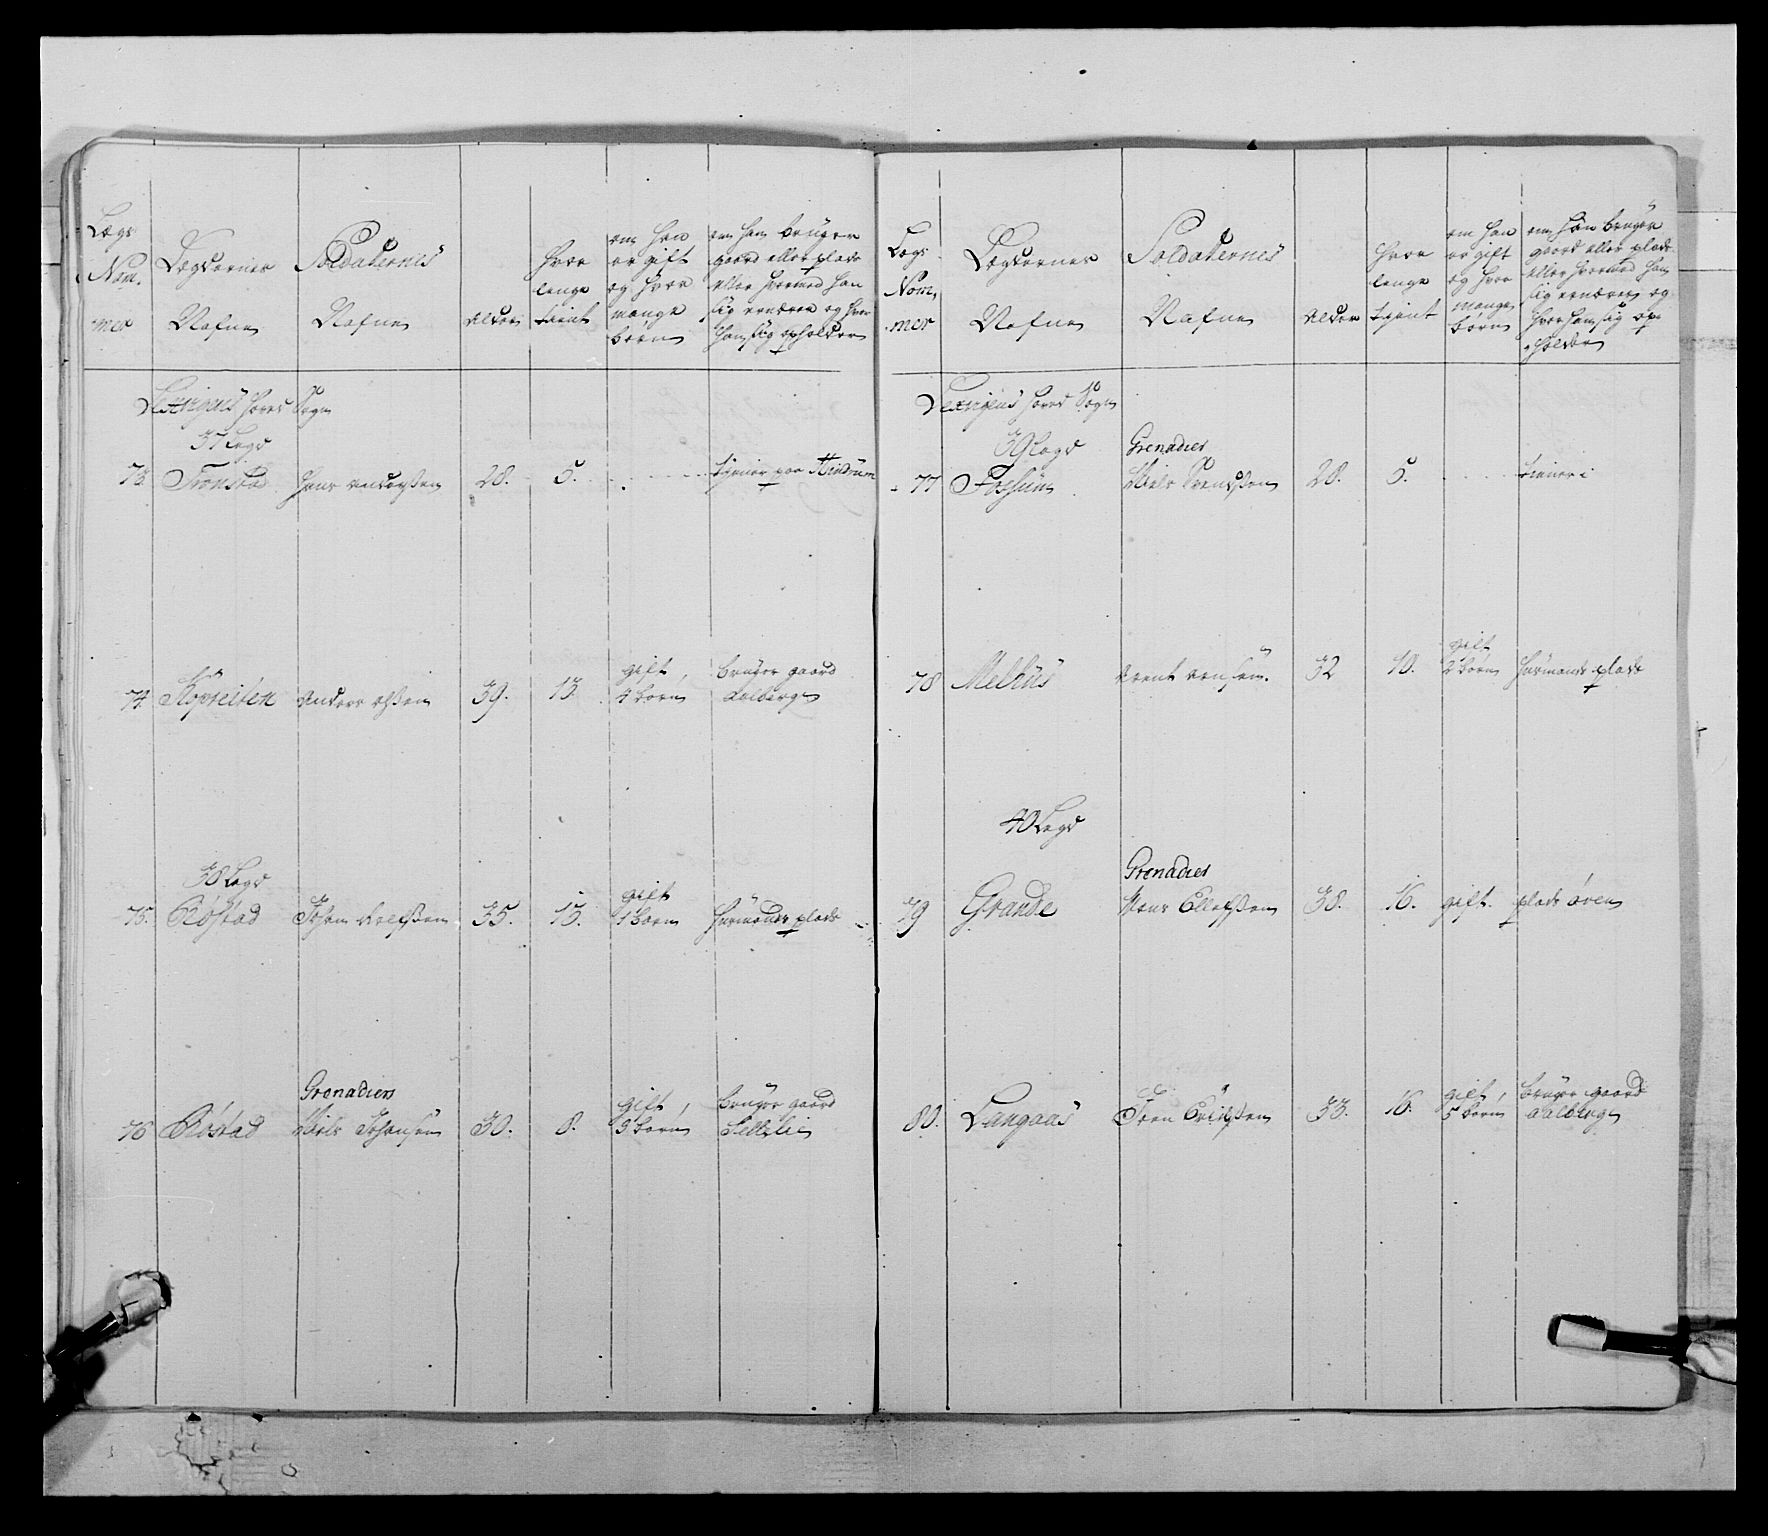 Lægs
Nom,
mer
Lægdernes
Nafne
Soldaternes
Nafne
Alder
hvor
lenge
tient
om han
er gift
og hvor
mange
børn
om han bruger
gaard eller plads
eller hvormed han
sig ernærer og hvor
han sig opholder
Lexvigens hoved Sogn
37 Legd
73. Tronstad Hans Andersen 28. 5. tiener paa Hindrum
74. Kopreiten Anders Olsen 39. 13. gift, 4 børn bruger gaard
38 Legd
75. Røstad Johan Rolfsen 35. 15. gift 1 barn Huusmands plads
Grenadier
76 Røstad Niels Johansen 30. 8. gift, 3 børn bruger gaard
Lægs
Nom,
mer
Lægdernes
Nafne
Soldaternes
Nafne
Alder
hvor
lenge
tient
om han
er gift
og hvor
mange
børn
om han bruger
gaard eller plads
eller hvormed han
sig ernærer og
hvor han sig op
holder
Lexvigens hoved Sogn
39 Legd
Grenadier
77 Fossum Niels Svendsen 28. 5. tiener i
78 Melhus Arent 32 10. gift 2 børn Huusmands plads
40 Legd
Grenadier
79 Grande Hans Ellefsen 38. 16. gift. plads øren
80. Langaas Sven Erichsen 33. 16. gift, 5 børn bruger gaard